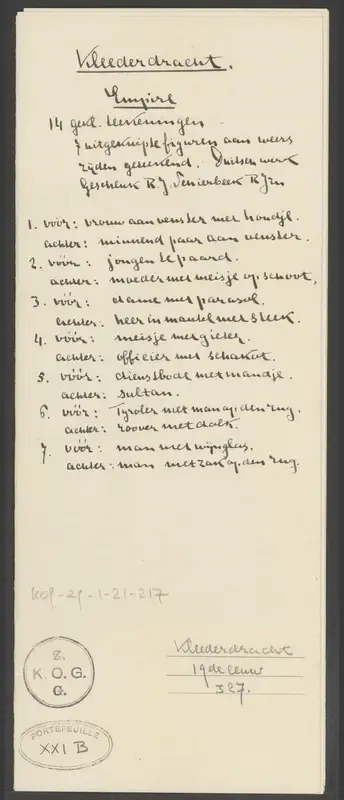 Kleederdracht.
Empire
14 gekl. teekeningen -
7 uitgeknipte figuren aan weers
zijden geteekend. Duitsch werk
Geschenk R.J.
1. vóór: vrouw aan venster met hondje.
achter: minnend paar aan venster.
2. vóór: jongen te paard.
achter: moeder met meisje op schoot,
3. vóór: dame met parasol.
achter: heer in mantel met steek.
4. vóór: meisje met gieter.
achter: officier met schakot.
5. vóór: dienstbode met mandje.
achter: sultan.
6. vóór: Tyroler met man op den rug.
achter: roover met dolk.
7. vóór: man met wijnglas.
achter: man met zak op den rug.
KOG-ZG-1-21-217
Z.
K. O. G.
G.
Kleederdracht
19de eeuw
327.
PORTEFEUILLE
XXI B